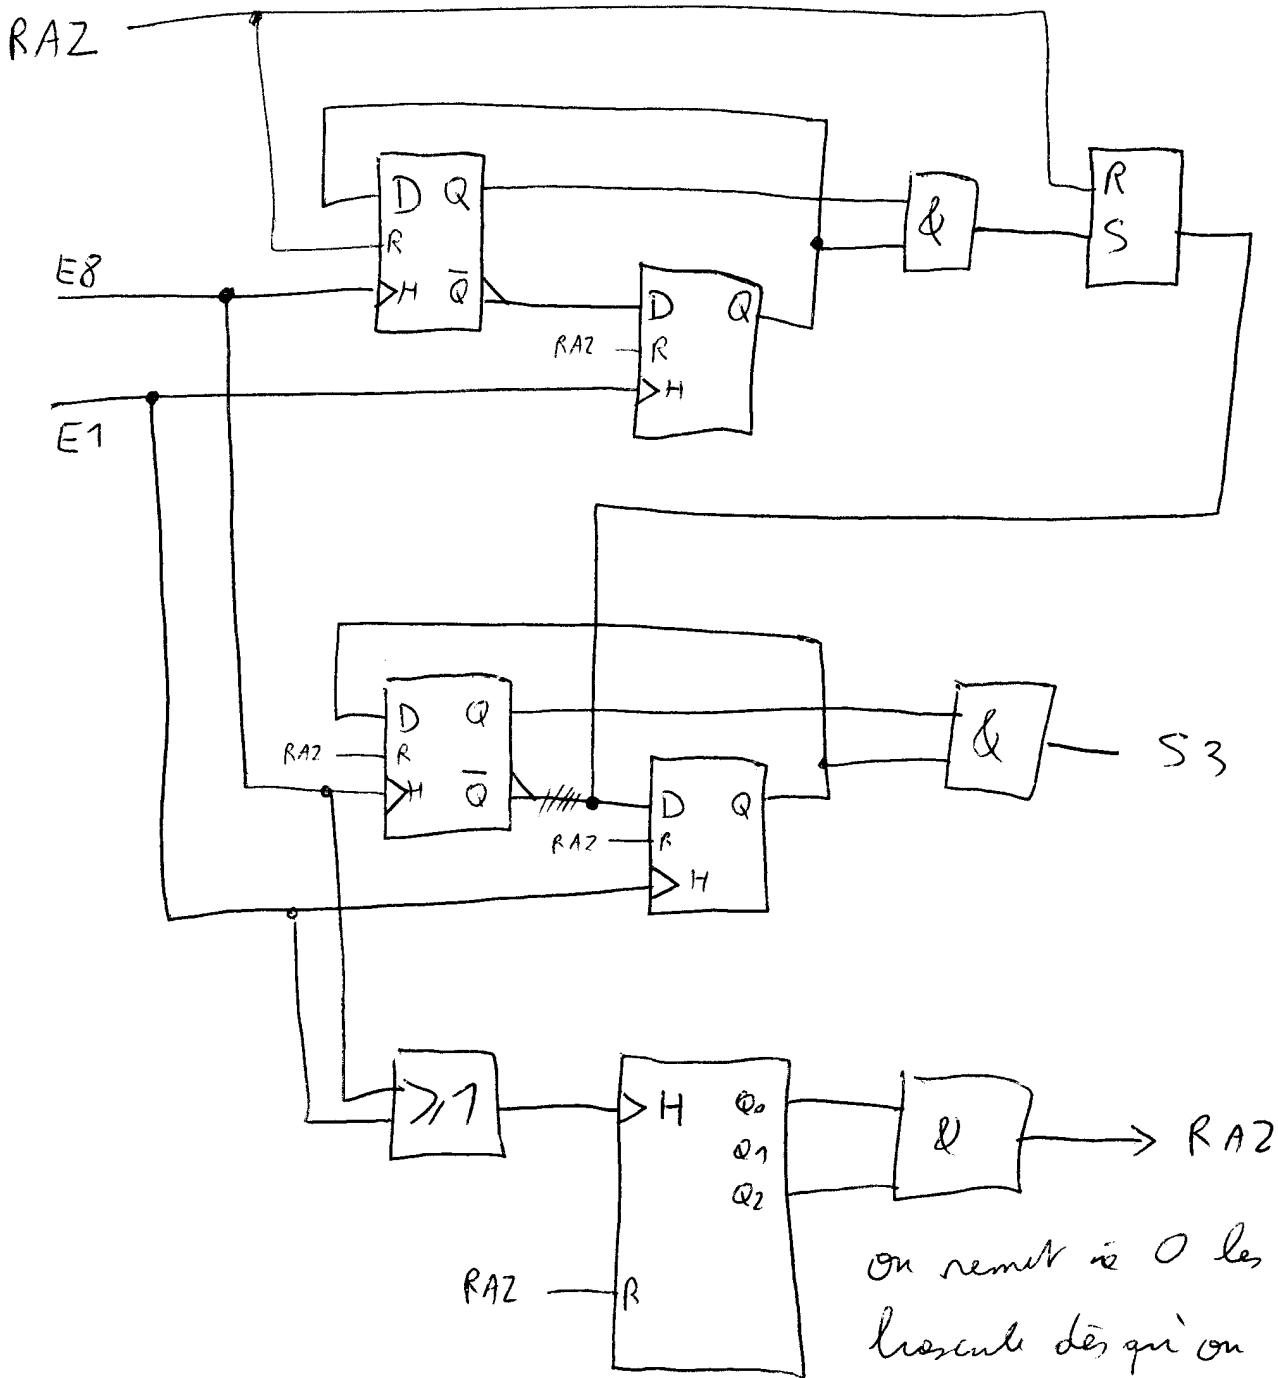 RAZ
D Q
R
H Q̅
E8
E1
D Q
RAZ R
H
&
R
S
D Q
RAZ R
H Q̅
D Q
RAZ R
H
&
S3
≥1
H Q0
Q1
Q2
RAZ R
&
RAZ
on remet à 0 les
bascule dès qu'on